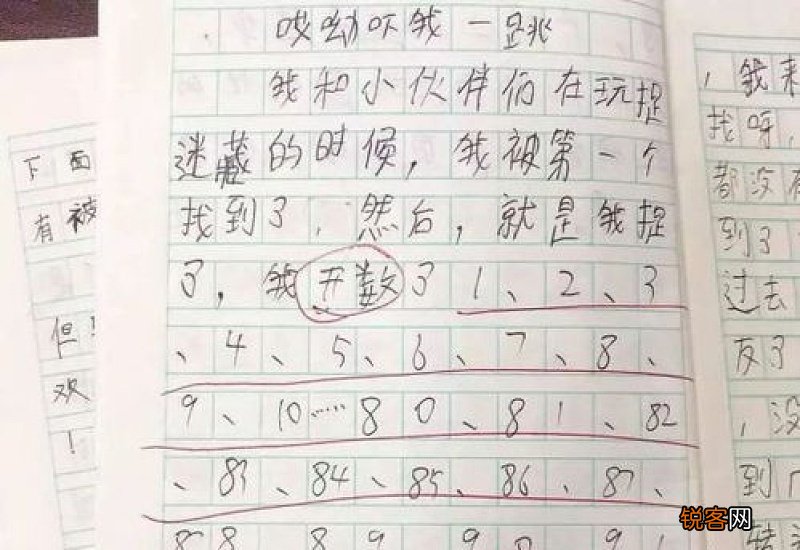 哎呦吓我一跳
我和小伙伴们在玩捉
迷藏的时候，我被第一个
找到了，然后，就是我捉
了，我开数了1、2、3
、4、5、6、7、8、
9、10……80、81、82
、83、84、85、86、87、
88 89 90 91
下面
有被
但
欢
！
，我来
找呀，
都没有
到了
过去
反了
，没
到
锐客网